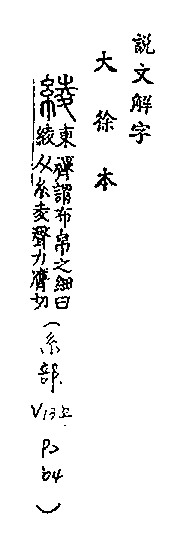 說文解字
大徐本
綾 東齊謂布帛之細曰
綾从糸夌聲力膺切
(糸部 V13上 P264)